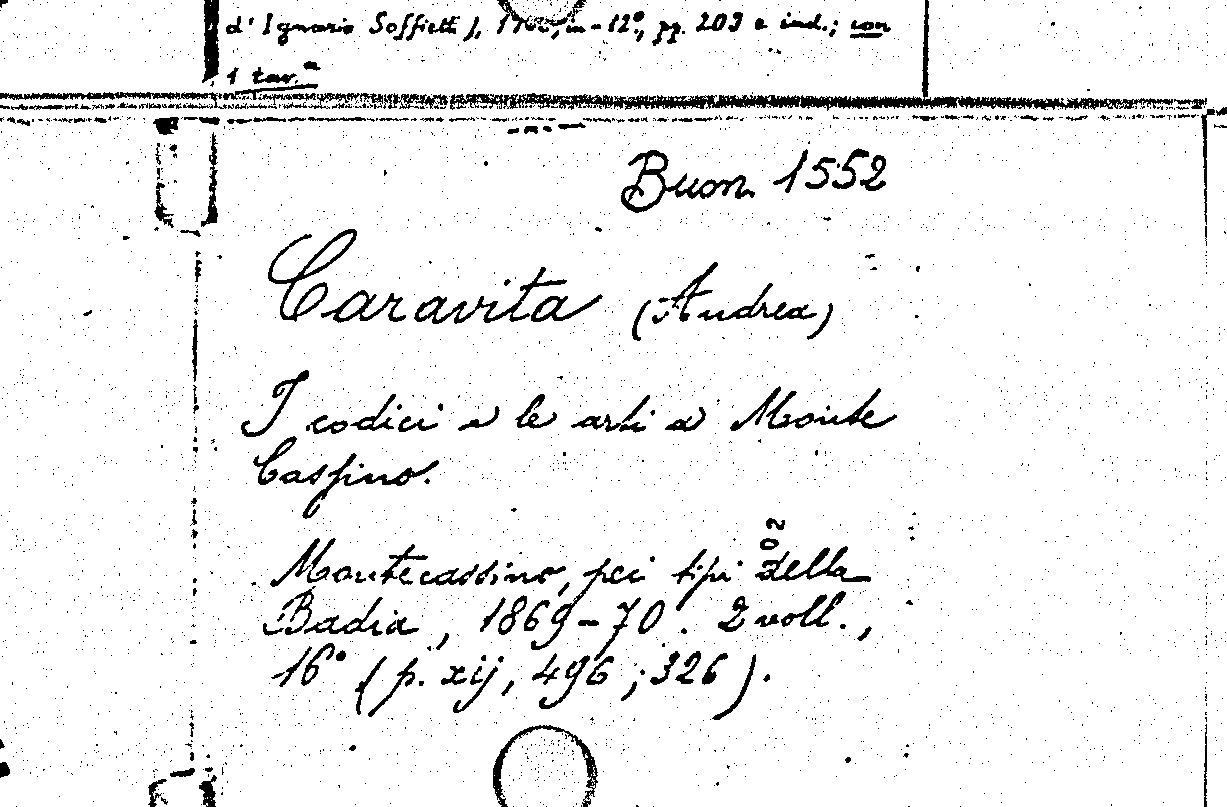 d' Ignazio Soffietti), in-12°, pp. 203 e ind.; con
1 tav.a
Buon. 1552
Caravita (Andrea)
I codici e le arti a Monte
Cassino.
Montecassino, pei tipi della
Badia, 1869-70. 2 voll.,
16° (p. xij, 496; 326).